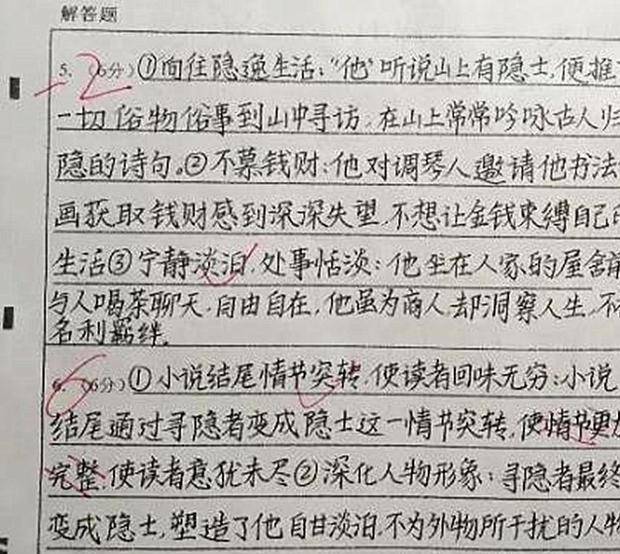 解答题
5. (6分) ①向住隐逸生活:"他"听说山上有隐士,便推
-2
一切俗物俗事到山中寻访,在山上常常吟咏古人归
隐的诗句。②不慕钱财:他对调琴人邀请他书法
画获取钱财感到深深失望,不想让金钱束缚自己的
生活③宁静淡泊,处事恬淡:他坐在人家的屋舍前
与人喝茶聊天,自由自在,他虽为商人,却洞察人生,不
名利羁绊.
6. (6分) ①小说结尾情节突转,使读者回味无穷:小说
6
结尾通过寻隐者变成隐士这一情节突转,使情节更加
完整,使读者意犹未尽②深化人物形象:寻隐者最终
变成隐士,塑造了他自甘淡泊,不为外物所干扰的人物